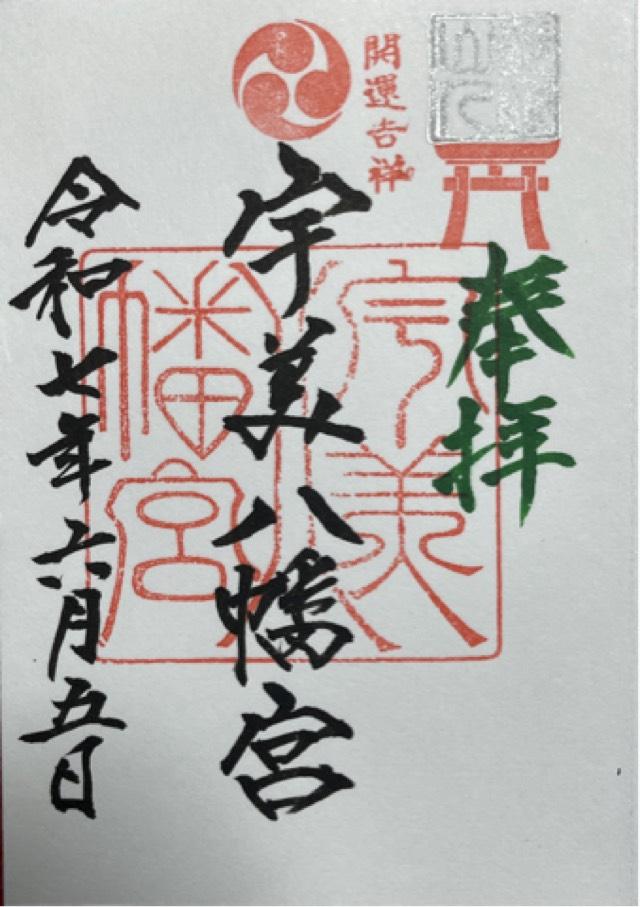 奉拝
開運吉祥
宇美八幡宮
宇美八幡宮
令和七年六月五日